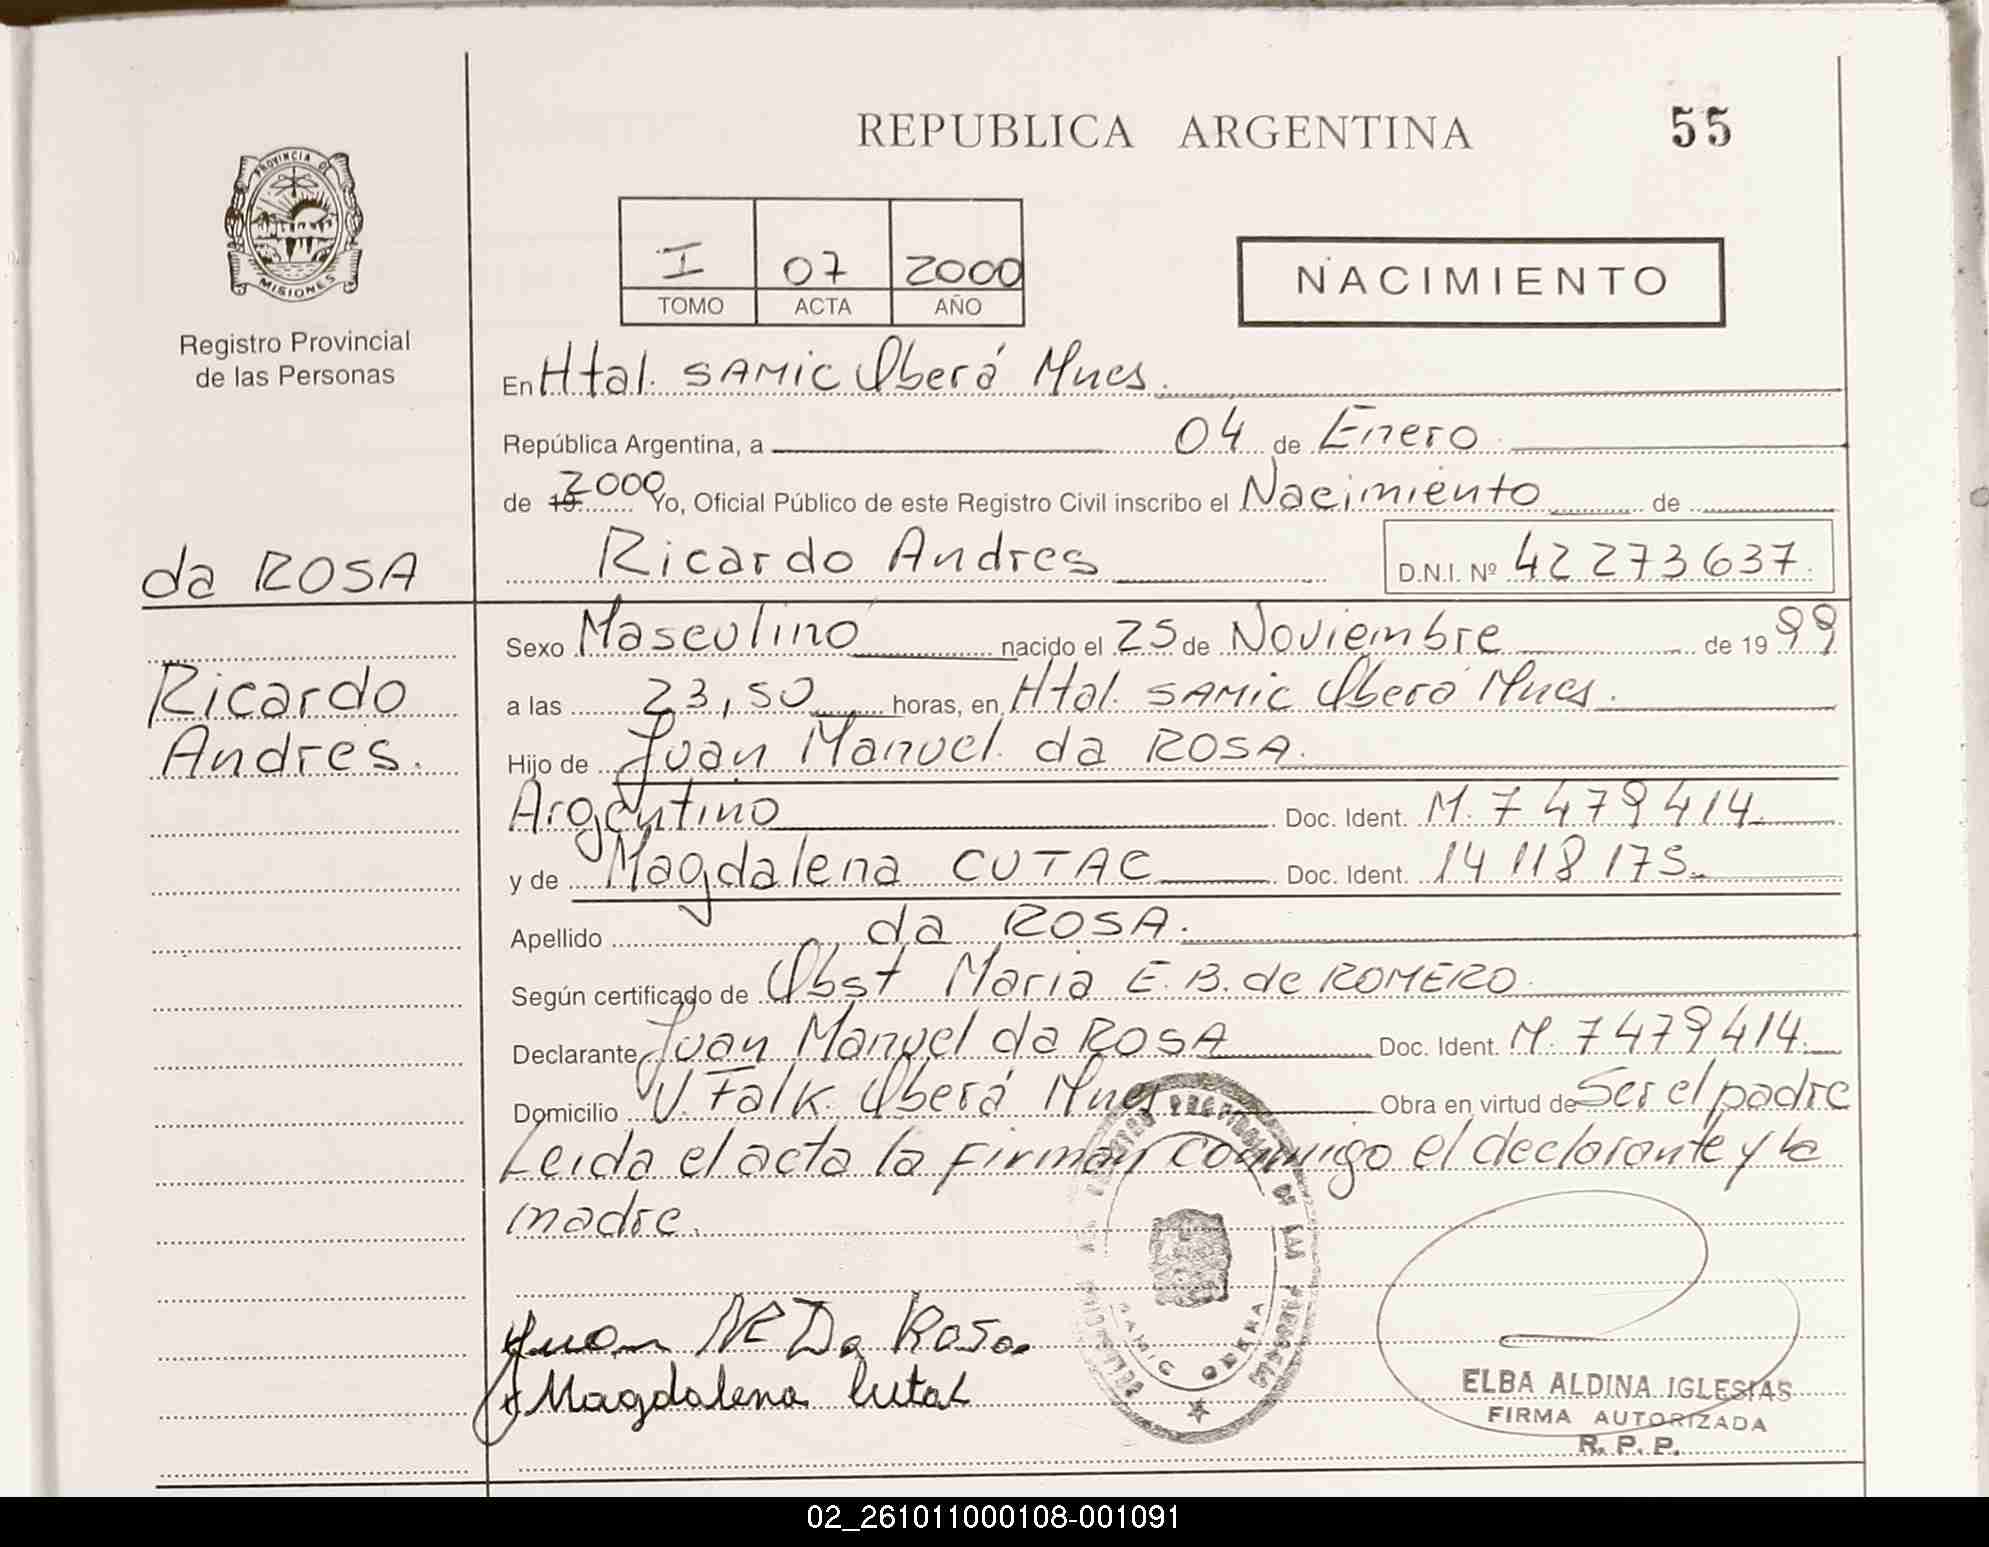 REPUBLICA ARGENTINA
55
PROVINCIA DE
MISIONES
Registro Provincial
de las Personas
I 07 2000
TOMO ACTA AÑO
NACIMIENTO
En Htal. SAMIC Oberá Mnes.
República Argentina, a 04 de Enero
de 19 2000 Yo, Oficial Público de este Registro Civil inscribo el Nacimiento de
da ROSA
Ricardo Andres D.N.I. Nº 42 273 637.
Sexo Masculino nacido el 25 de Noviembre de 19 99
Ricardo
Andres.
a las 23,50 horas, en Htal. SAMIC Oberá Mnes.
Hijo de Juan Manuel da ROSA.
Argentino Doc. Ident. M. 7 479 414.
y de Magdalena CUTAC Doc. Ident. 14 118 175.
Apellido da ROSA.
Según certificado de Obst Maria E. B. de ROMERO.
Declarante Juan Manuel da ROSA Doc. Ident. M. 7 479 414.
Domicilio V. Falk. Oberá Mnes Obra en virtud de Ser el padre
Leida el acta la firman conmigo el declarante y la
madre.
Juan M Da Rosa
Magdalena Cutac
PROVINCIAL DE LAS PERSONAS
SAMIC OBERA
ELBA ALDINA IGLESIAS
FIRMA AUTORIZADA
R. P. P.
02_261011000108-001091